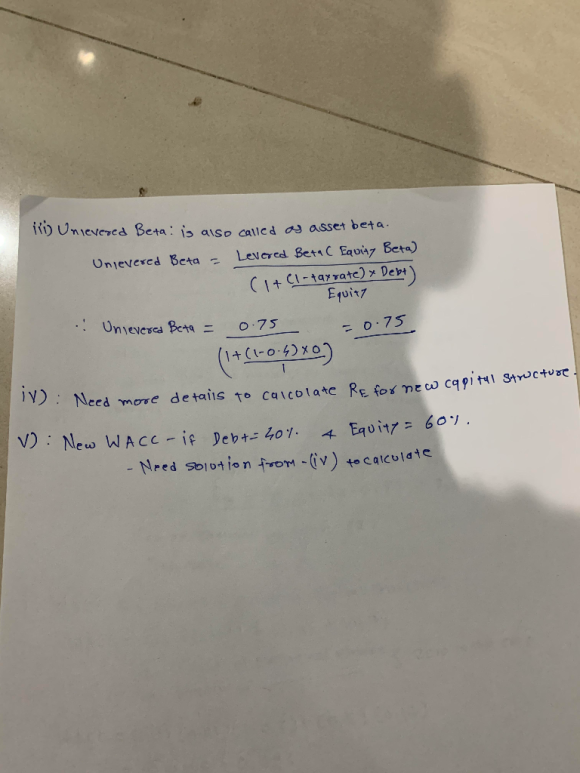 iii) Unlevered Beta: is also called as asset beta.
Unlevered Beta = Levered Beta ( Equity Beta)
(1 + (1-tax rate) x Debt)
Equity
∴ Unlevered Beta = 0.75 = 0.75
(1+(1-0.4) x 0)
1
iv) : Need more details to calculate RE for new capital structure.
v) : New WACC - if Debt = 40%. & Equity = 60%.
- Need solution from - (iv) to calculate